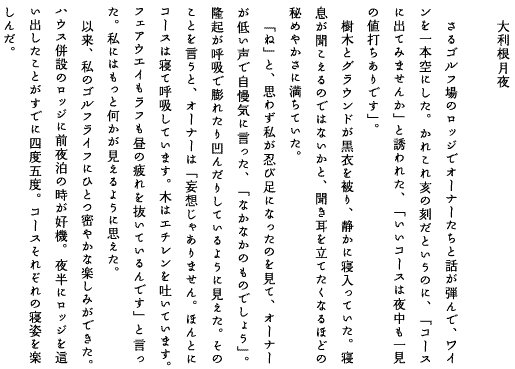 大利根月夜
さるゴルフ場のロッジでオーナーたちと話が弾んで、ワイ
ンを一本空にした。かれこれ亥の刻だというのに、「コース
に出てみませんか」と誘われた、「いいコースは夜中も一見
の値打ちありです」。
樹木とグラウンドが黒衣を被り、静かに寝入っていた。寝
息が聞こえるのではないかと、聞き耳を立てたくなるほどの
秘めやかさに満ちていた。
「ね」と、思わず私が忍び足になったのを見て、オーナー
が低い声で自慢気に言った、「なかなかのものでしょう」。
隆起が呼吸で膨れたり凹んだりしているように見えた。その
ことを言うと、オーナーは「妄想じゃありません。ほんとに
コースは寝て呼吸しています。木はエチレンを吐いています。
フェアウエイもラフも昼の疲れを抜いているんです」と言っ
た。私にはもっと何かが見えるように思えた。
以来、私のゴルフライフにひとつ密やかな楽しみができた。
ハウス併設のロッジに前夜泊の時が好機。夜半にロッジを這
い出したことがすでに四度五度。コースそれぞれの寝姿を楽
しんだ。